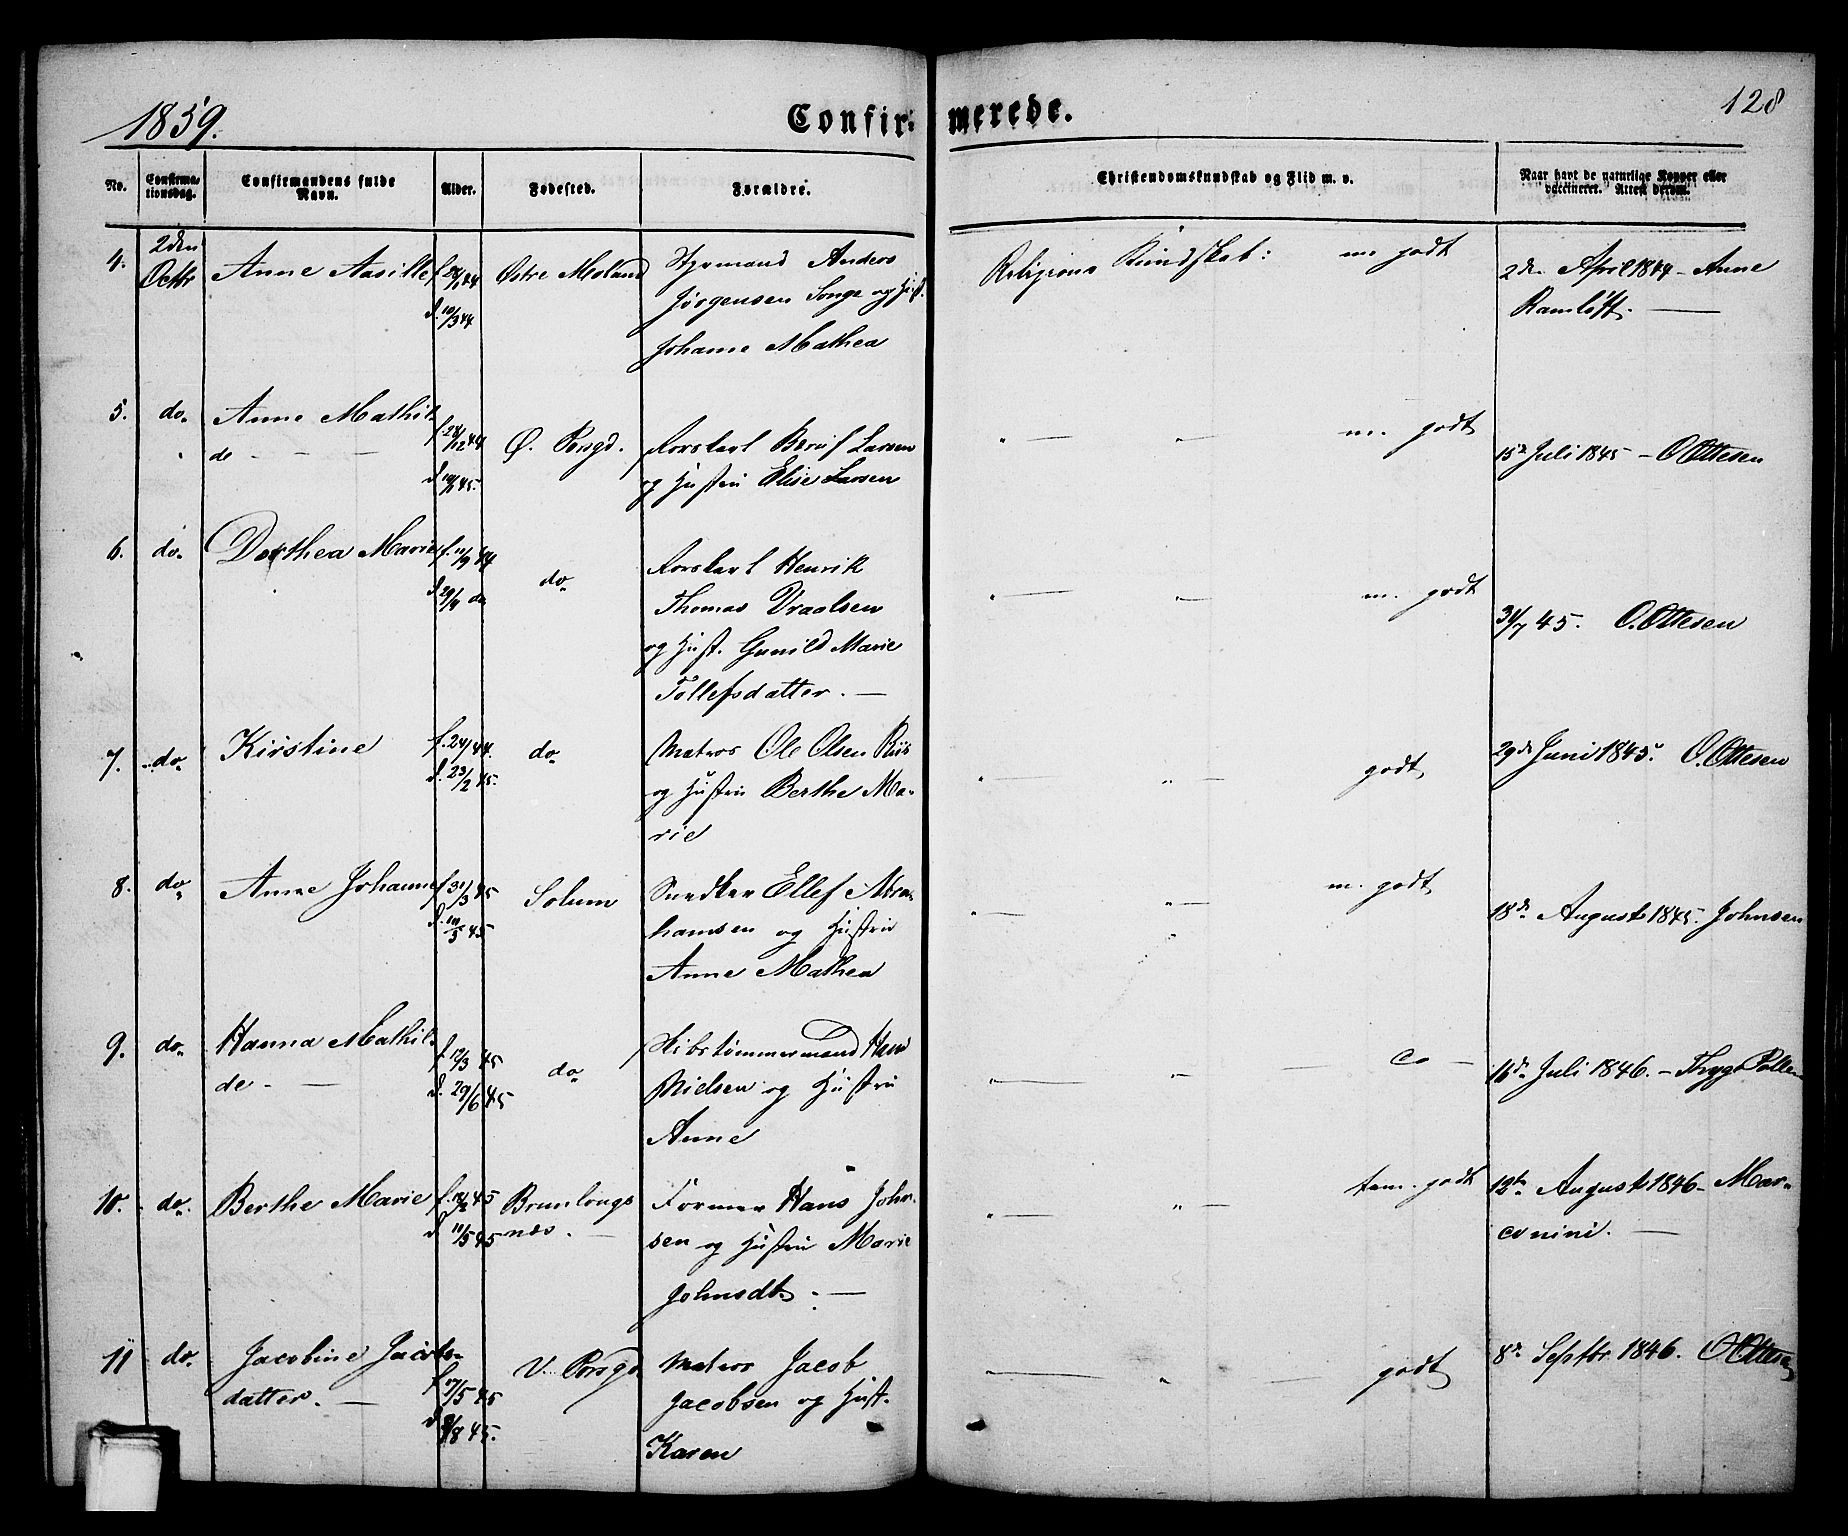 1859.
Confir-
merede.
128
No.
Confirma-
tionsdag.
Confirmandens fulde
Navn.
Alder.
Fødested.
Forældre.
Christendomskundskab og Flid m. v.
Naar havt de naturlige Kopper eller
vaccineret. Attest derom.
4.
2den
Octbr
Anne Aasille
d. 10/3 44
Østre Moland
Styrmand Anders
Jørgensen Songe og Hust.
Johanne Mathea
Religions Kundskab: m godt
2den April 1844 - Anne
Ramløft. —
5.
do.
Anne Mathil-
de - - -
f. 28/12 44
Ø. Porsgd.
Larsen
og Hustru Elise Larsen
" — " m. godt
15de Juli 1845 - O Ottesen
6.
do.
Dorthea Marie
f. 11/9 44
d. 29/9 do
do.
Henrik
Thomas Vraalsen
og Hust. Gunild Marie
Tollefsdatter. —
" — " — m. godt
31/7 45. O. Ottesen
7.
do.
Kirstine
d. 23/2 45.
do.
Matros Ole Olsen Riis
og Hustru Berthe Ma-
rie
" — " — godt
29de Juni 1845. O. Ottesen
8.
do.
Anne Johanne
f. 31/3 45
d. 10/5 45
Solum
Snedker Ellef Abra-
hamsen og Hustru
Anne Mathea
" — " — m. godt
18de August 1845. Johnsen
9.
do.
Hanna Mathil-
de - —
f. 12/3 45
d. 29/6 45
do.
Skibstømmermand Hans
Nielsen og Hustru
Anne
" — " — —
16de Juli 1846. - Thyge Pollen
10.
do.
Berthe Marie
d. 11/5 45
Brunlangs
næs. —
Former Hans John-
sen og Hustru Marie
Johnsdt. —
" — " — tem. godt
12te August 1846 - Mar-
conini. —
11
do.
Jacobine Jacobs-
datter. —
f. 17/5 45
V. Porsgd
Matros Jacob
Jacobsen og Hust.
Karen
— " — godt
8de Septbr. 1846. O Ottesen